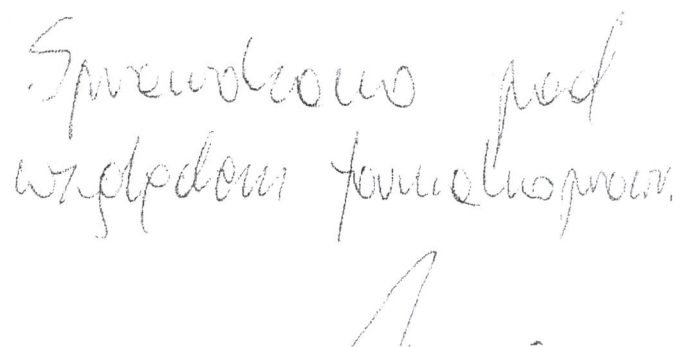 Sprawdzono pod
względem formalnopraw.